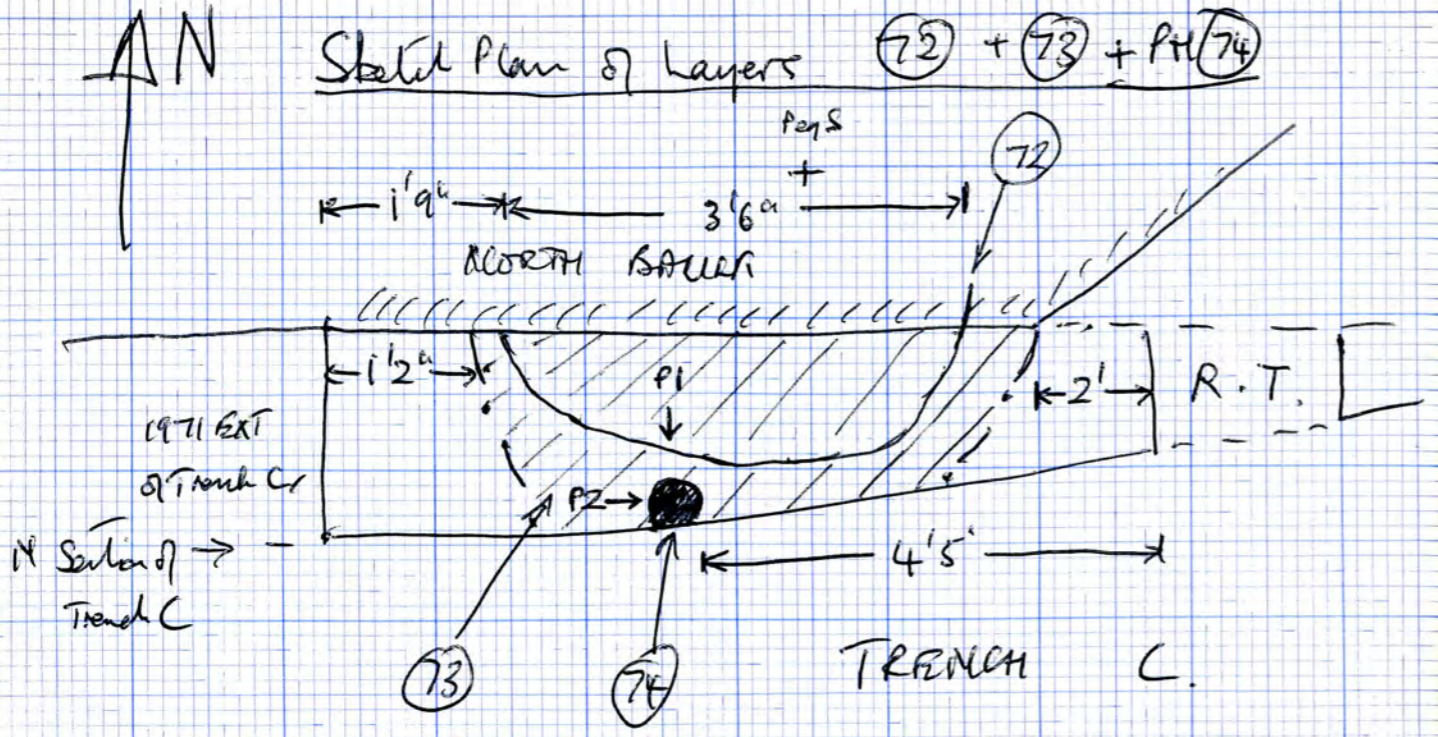 N Sketch Plan of Layers 72 + 73 + PH 74
Peg S
+
72
1'9" 3'6"
NORTH BAULK
1'2" P1 2' R.T.
1971 EXT
of Trench C
P2
N Section of
Trench C
4'5"
73 74 TRENCH C.